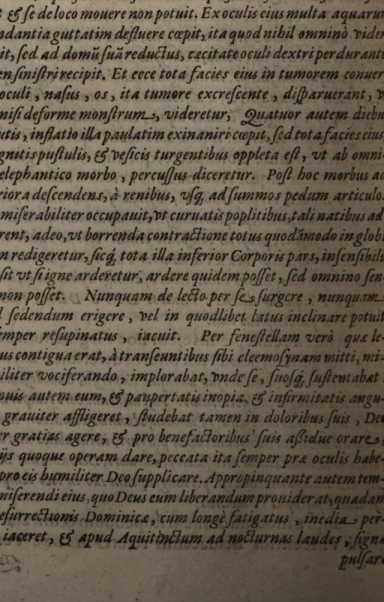 t & se de loco mouere non potuit. Ex oculis eius multa aquarum
adantia guttatim defluere cœpit, ita quod nihil omninò vider
it, sed ad domũ suã reductus, cæcitate oculi dextri perdurante
en sinistri recipit. Et ecce tota facies eius in tumorem conuer
oculi, nasus, os, ita tumore excrescente, disparuerunt, v
nisi deforme monstrum, videretur, Quatuor autem diebu
utis, inflatio illa paulatim exinaniri cœpit, sed tota facies eius,
gnitis pustulis, & vesicis turgentibus oppleta est, vt ab omni
elephantico morbo, percussus diceretur. Post hoc morbus ad
riora descendens, à renibus, vsq́ ad summos pedum articulo
miserabiliter occupauit, vt curuatis poplitibus, tali natibus ad
rent, adeo, vt horrenda contractione totus quodãmodo in globũ
m redigeretur, sicq́, tota illa inferior Corporis pars, insensibilis
sit vt si igne arderetur, ardere quidem posset, sed omnino sen
non posset. Nunquam de lecto per se surgere, nunquam
l sedendum erigere, vel in quodlibet latus inclinare potuit
emper resupinatus, iacuit. Per fenestellam verò quæ le-
us contigua erat, à transeuntibus sibi eleemosynam mitti, mi-
iliter vociferando, implorabat, vnde se, suosq́, sustentabat
quis autem eum, & paupertatis inopia, & infirmitatis angu-
grauiter affligeret, studebat tamen in doloribus suis, Deo
er gratias agere, & pro benefactoribus suis assidue orare,
ijs quoque operam dare, peccata ita semper præ oculis habe-
pro eis humiliter Deo supplicare. Appropinquante autem tem-
miserendi eius, quo Deus eum liberandum prouiderat, quadam
esurrectionis Dominicæ, cum longè fatigatus, inedia per-
iaceret, & apud Aquitinctum ad nocturnas laudes, signa
pulsare